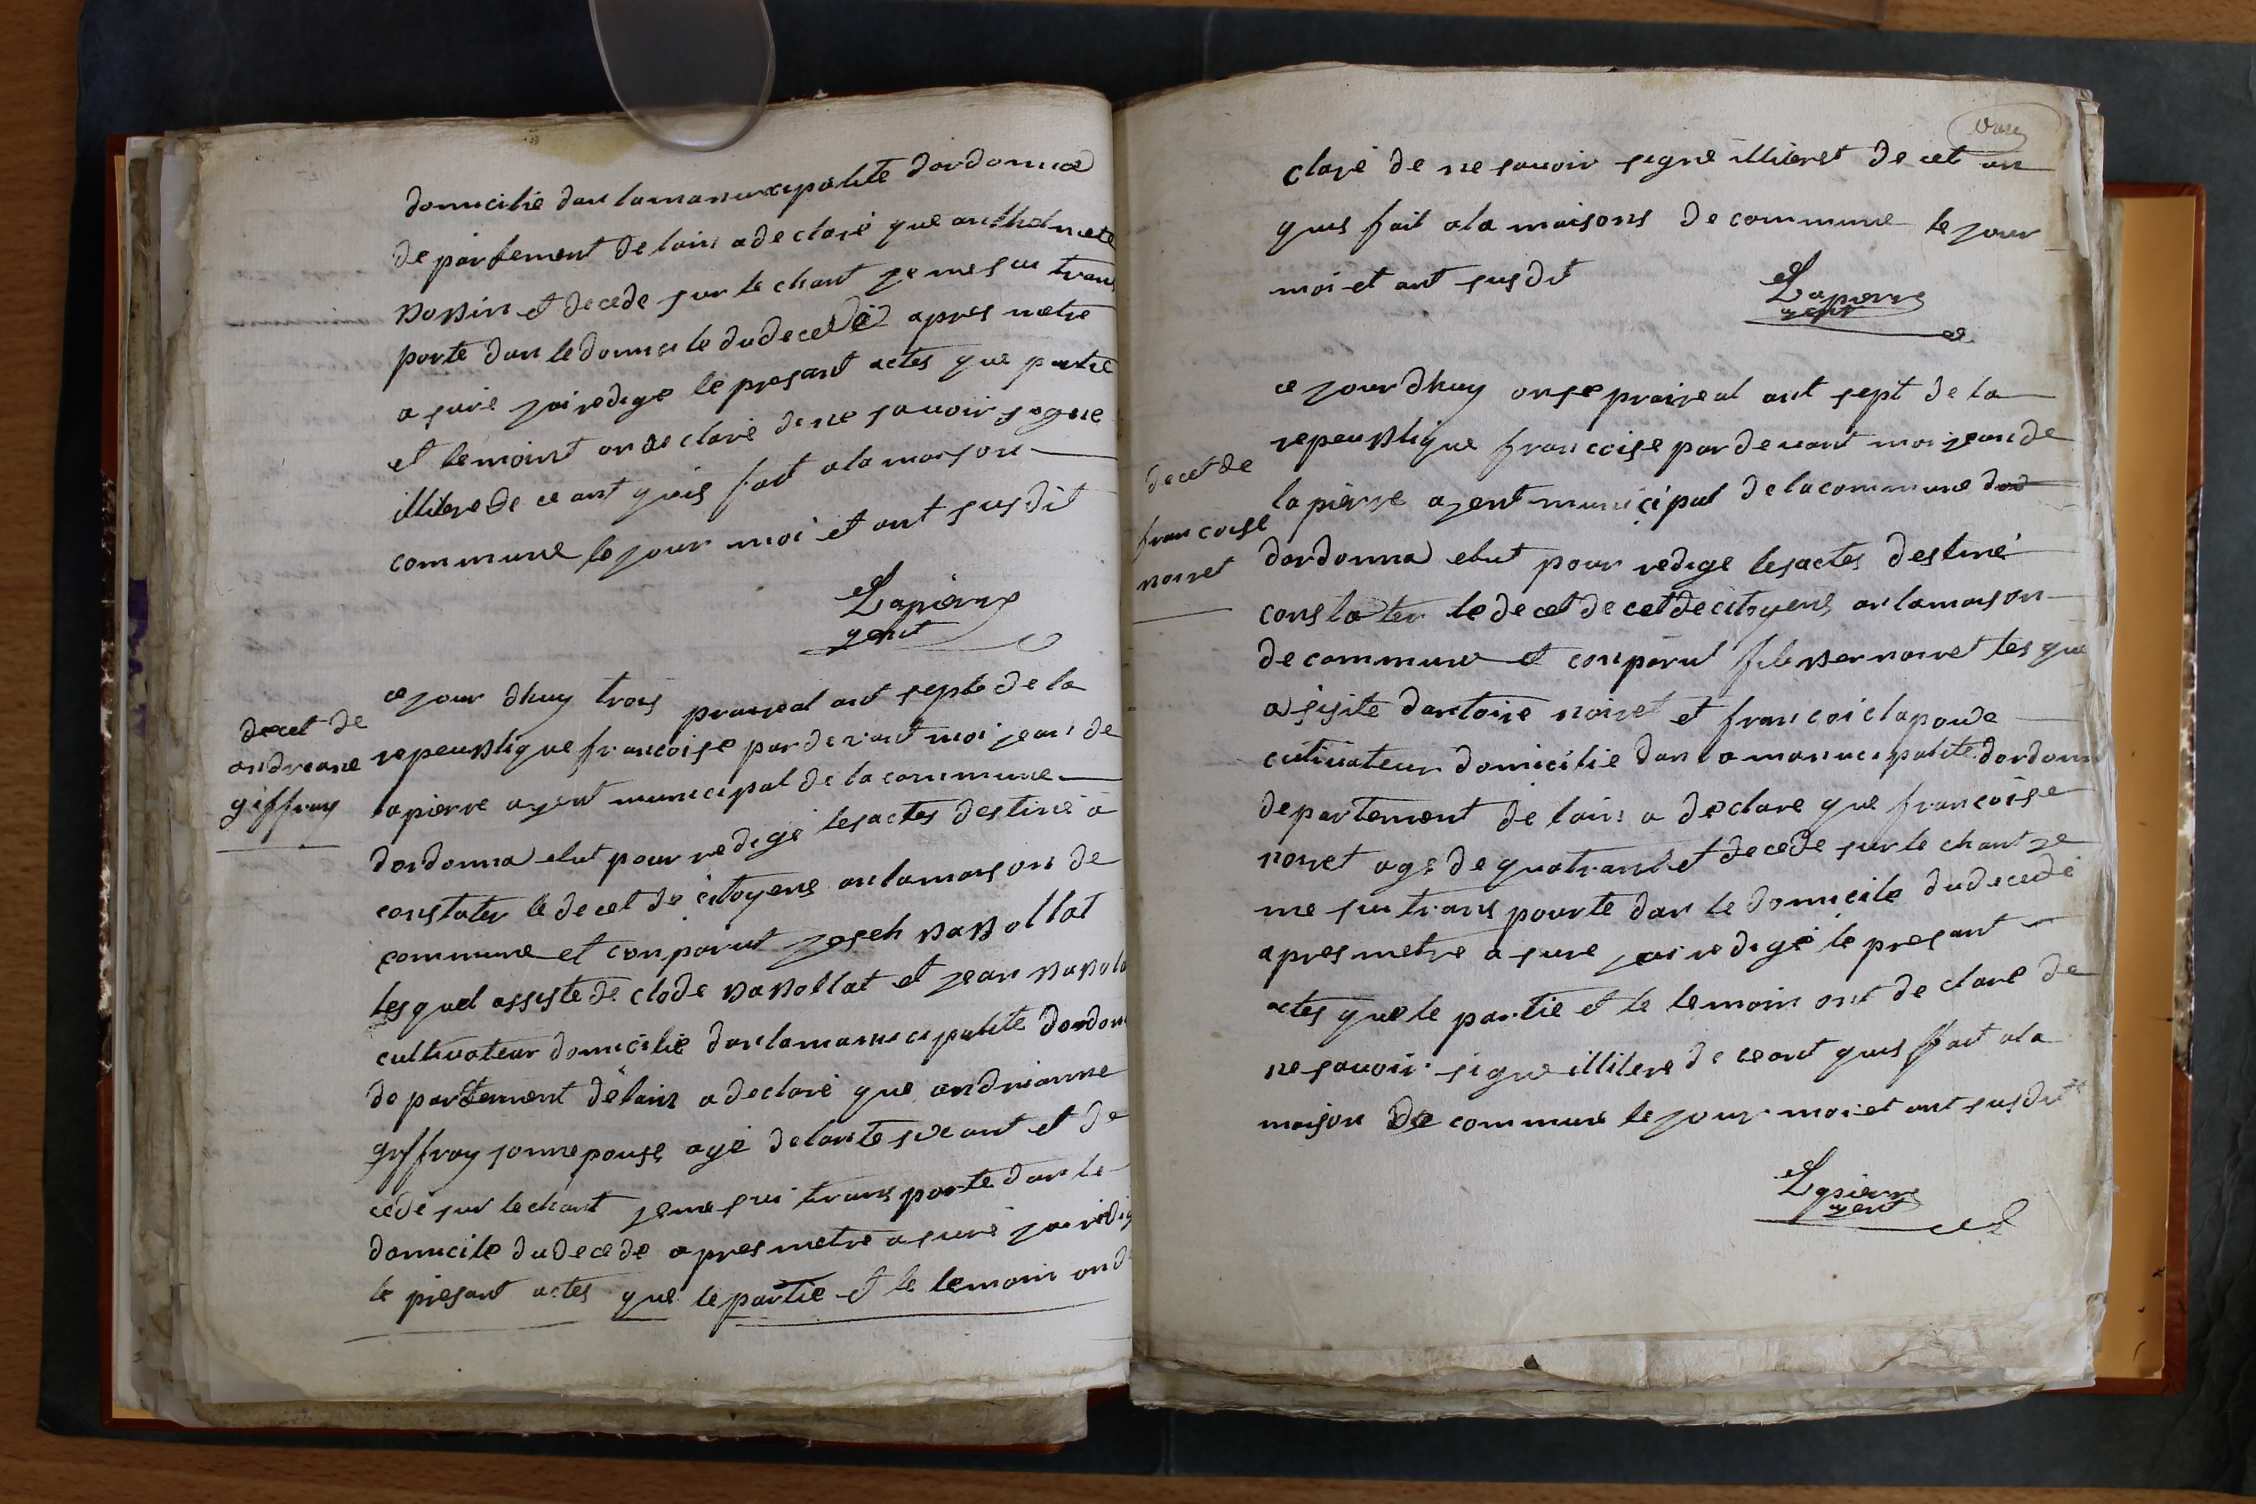 domicilie dan lamanucipalite dordonna
departement de lain a declaré que anthelmete
Bobin et decede sur le chant je me sui trans
porte dan le domicile du decede apres metre
a suré jai redige le presant actes que partie
et temoint on declaré de ne sauoir signe
illitere de ce ant quis fait a la maison
commune le jour moi et ant susdit
Lapierre
gent
decet de
andreane
giffray
ce jour dhuy trois praireal ant septe de la
repeublique francoise par devant moi jean de
lapierre agent municipal de la commune
dordonna elut pour redigé les actes destiné a
constater le decet de citoyens an la maison de
commune et conparut joseh BaBollat
lesquel assiste de clode BaBollat et jean BaBola
cultivateur domicilié dan lamanucipalite dordon
departement de lain a declaré que andrianne
gyffray sonnepouse agé de lante sis ant et de
cedé sur le chant jeme sui trans porte dan le
domicile du decede apres metre a suré jai redig
le present actes que le partie et le temoin ond
claré de ne sauoir signe illiteret de cet an
quis fait a la maisons de commune le jour
moi et ant susdit
Lapierre
agent
decet de
francoise
noiret
ce jour dhuy onse praireal ant sept de la
repeublique francoise par devant moi jean de
la pierre agent municipal de la commune dod
dordonna elut pour redige les actes destiné
constater le decet de cet de citoyens an la maison
de commune et conparut filiBer noiret les que
a sisite dantoine noiret et francoi clapoude
cutivateur domicilie dan la manucipalite dordonn
departement de lain a declare que francoise
noiret age de quatrant et decede sur le chant je
me sui trans pourte dan le domicile du decede
apres metre a sure jai redigé le presant
actes que le partie et le temoin ont declaré de
ne sauoir signe illitere de ce ant quis fait a la
maison de commune le jour moi et ant susdit
Lapierre
agent